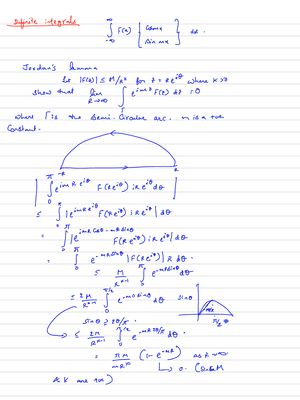 Definite integrals
∞
∫ F(x) { cos mx
sin mx } dx.
-∞
Jordan's Lemma
Let |F(z)| ≤ M/R^k for z = Re^{iθ} where k>0
Show that lim_{R→∞} ∫_Γ e^{imz} F(z) dz = 0
where Γ is the Semi-Circular arc. m is a +ve
Constant.
-R R
| ∫_0^π e^{imRe^{iθ}} F(Re^{iθ}) iRe^{iθ} dθ |
≤ ∫_0^π |e^{imRe^{iθ}} F(Re^{iθ}) iRe^{iθ}| dθ
= ∫_0^π |e^{imR cosθ - mR sinθ} F(Re^{iθ}) iRe^{iθ}| dθ
= ∫_0^π e^{-mR sinθ} |F(Re^{iθ})| R dθ.
≤ M/R^{k-1} ∫_0^π e^{-mR sinθ} dθ
= 2M/R^{k-1} ∫_0^{π/2} e^{-mR sinθ} dθ
sinθ
π/2 θ
sinθ ≥ 2θ/π.
≤ 2M/R^{k-1} ∫_0^{π/2} e^{-mR 2θ/π} dθ.
= πM/mR^k (1-e^{-mR}) as R→∞
→ 0.
& k are +ve)